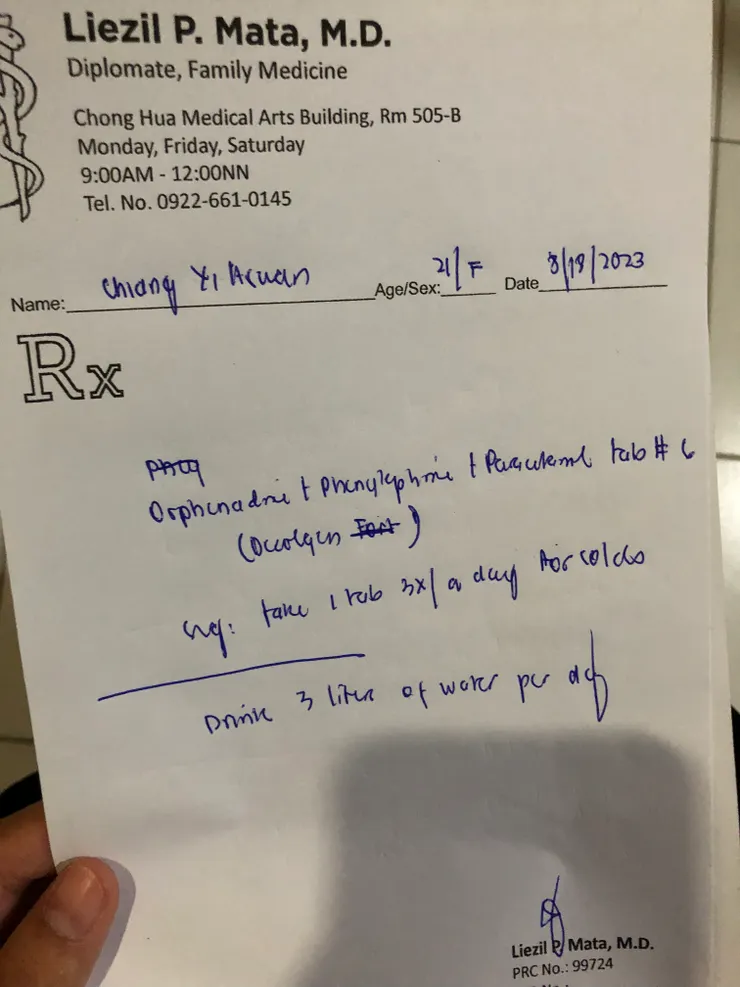 Liezil P. Mata, M.D.
Diplomate, Family Medicine
Chong Hua Medical Arts Building, Rm 505-B
Monday, Friday, Saturday
9:00AM - 12:00NN
Tel. No. 0922-661-0145
Name: Chiang Yi Age/Sex: 21/F Date 8/18/2023
Rx
Orphenadrine + Phenylephrine + Paracetamol tab # 6
Sig: take 1 tab 3x/ a day for colds
Drink 3 liter of water per day
Liezil P. Mata, M.D.
PRC No.: 99724